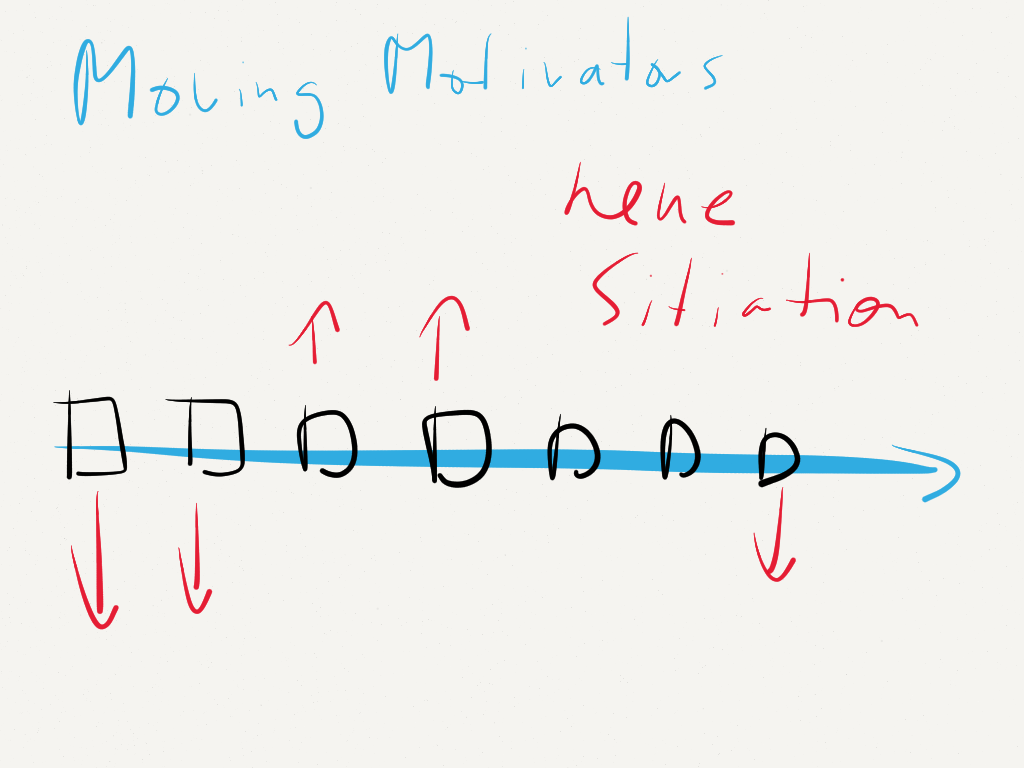 Moving Motivators
neue
Sitiation